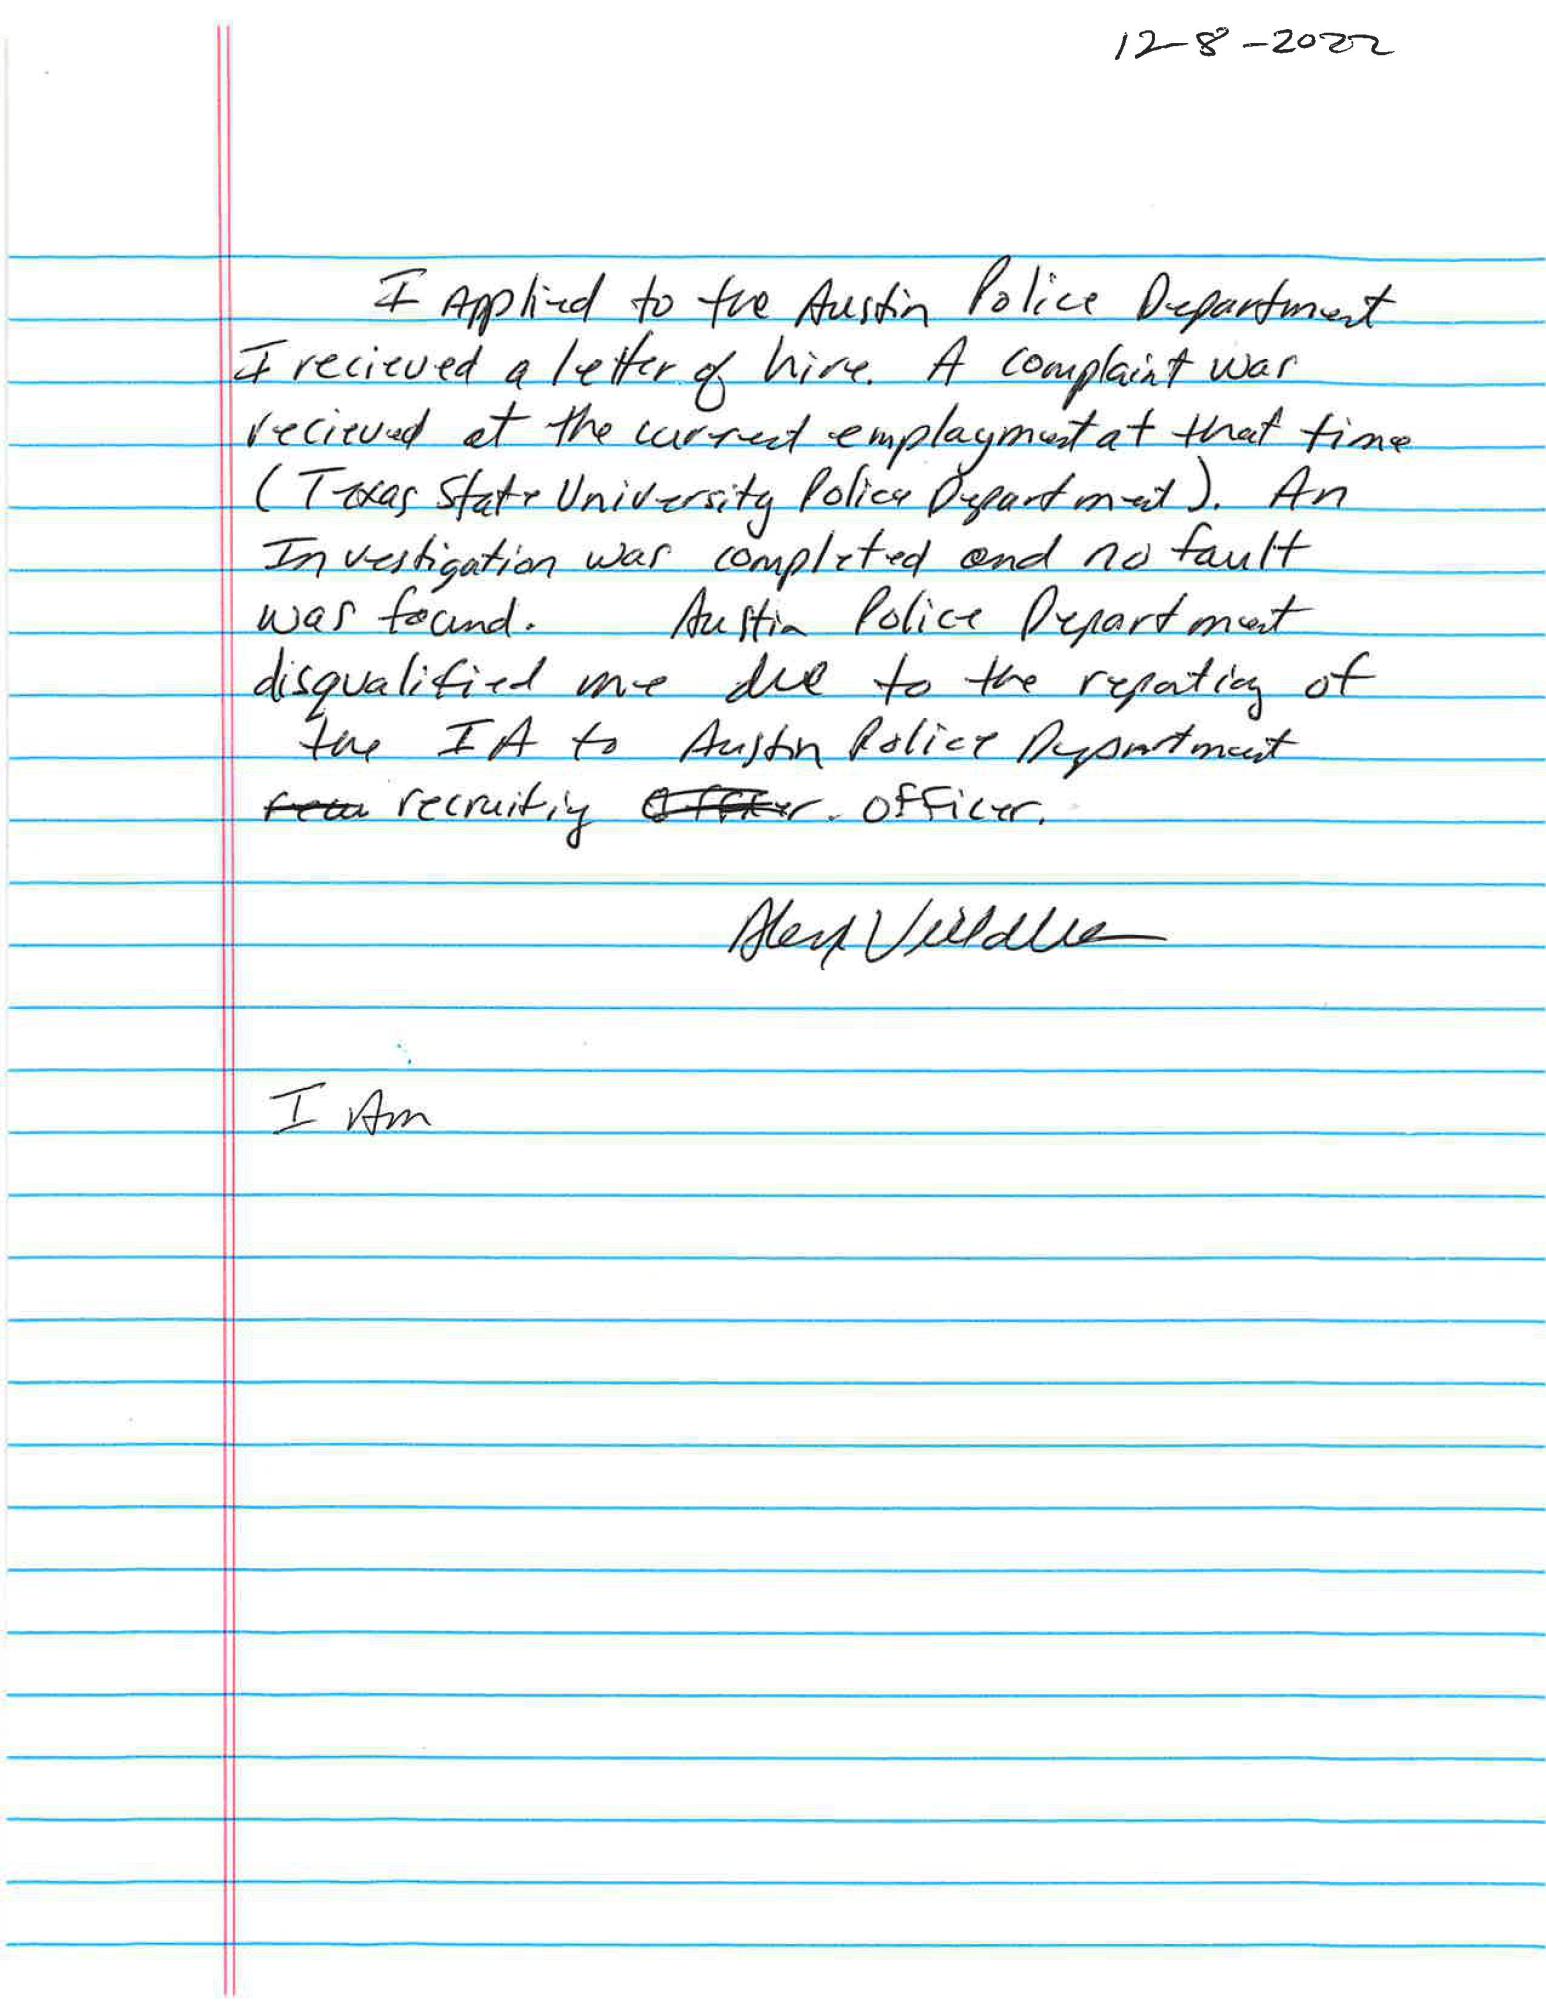 12-8-2022
I Applied to the Austin Police Department
I recieved a letter of hire. A complaint was
recieved at the current employment at that time
(Texas State University Police Department). An
Investigation was completed and no fault
was found. Austin Police Department
disqualified me due to the reporting of
the IA to Austin Police Department
recruiting officer.
Alex
I Am